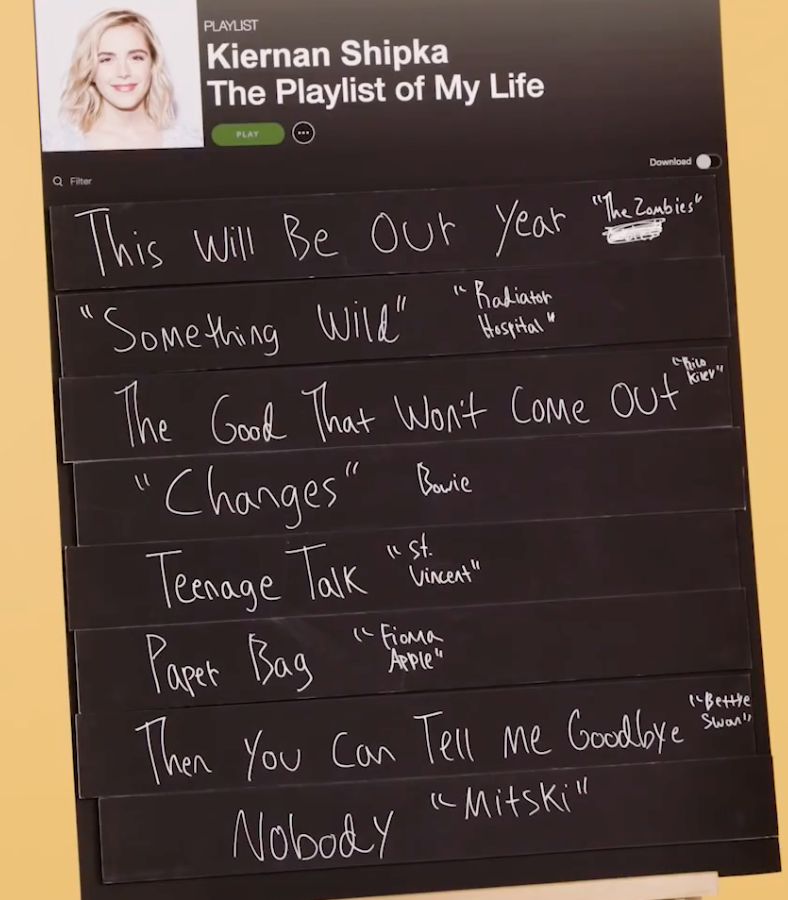 PLAYLIST
Kiernan Shipka
The Playlist of My Life
PLAY
Download
Filter
This Will Be Our Year "The Zombies"
"Something Wild" "Radiator
Hospital"
The Good That Won't Come Out "Rilo
Kiley"
"Changes" Bowie
Teenage Talk "St.
Vincent"
Paper Bag "Fiona
Apple"
Then You Can Tell Me Goodbye "Bettye
Swan"
Nobody "Mitski"